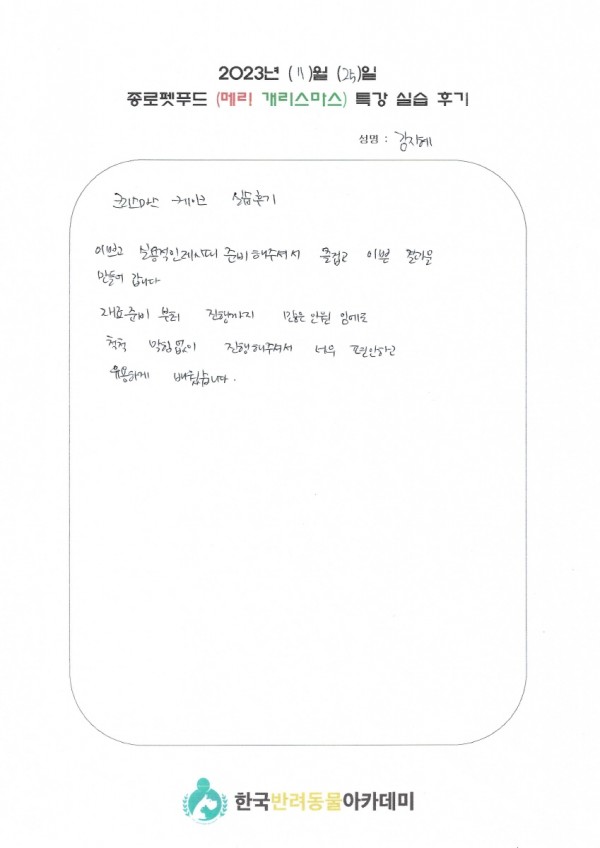 2023년 (11)월 (25)일
종로펫푸드 (메리 개리스마스) 특강 실습 후기
성명 : 김지혜
크리스마스 케이크 실습후기
이쁘고 실용적인 레시피 준비해주셔서 즐겁고 이쁜 결과물
만들어 갑니다
재료준비 부터 진행까지 많은 인원 임에도
척척 막힘없이 진행해주셔서 너무 편안하고
유용하게 배웠습니다.
한국반려동물아카데미